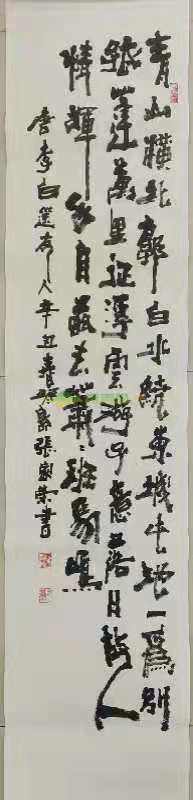 青山橫北郭白水繞東城此地一為別
孤蓬萬里征浮雲游子意落日故人
情揮手自茲去蕭々班馬鳴
唐李白送友人辛丑張榮書